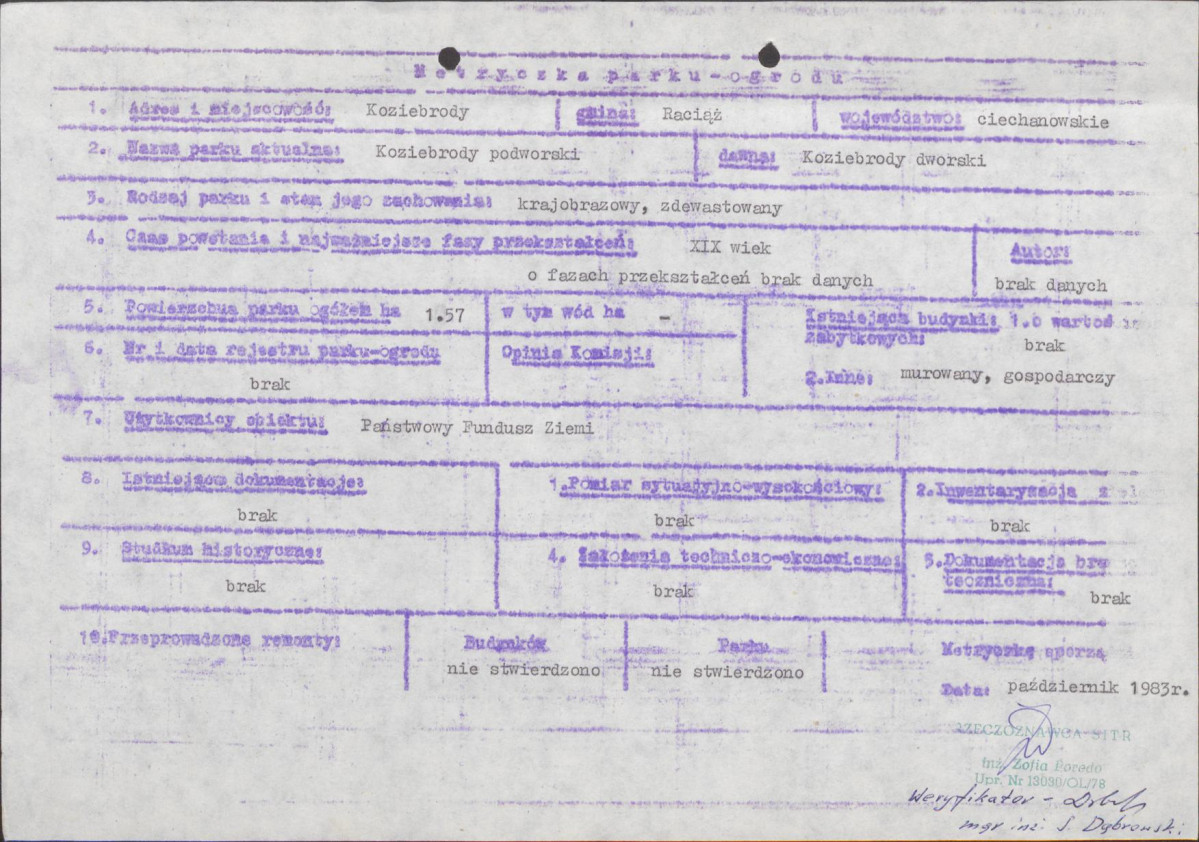 Metryczka parku-ogrodu
1. Adres i miejscowość: Koziebrody gmina: Raciąż województwo: ciechanowskie
2. Nazwa parku aktualna: Koziebrody podworski dawna: Koziebrody dworski
3. Rodzaj parku i stan jego zachowania: krajobrazowy, zdewastowany
4. Czas powstania i najważniejsze fazy przekształceń: XIX wiek Autor:
o fazach przekształceń brak danych brak danych
5. Powierzchnia parku ogółem ha 1.57 w tym wód ha - Istniejące budynki: 1.o wartoś
zabytkowych: brak
6. Nr i data rejestru parku-ogrodu Opinia Komisji:
brak 2.Inne: murowany, gospodarczy
7. Użytkownicy obiektu: Państwowy Fundusz Ziemi
8. Istniejące dokumentacje: 1.Pomiar sytuacyjno-wysokościowy: 2.Inwentaryzacja z
brak brak brak
9. Studium historyczne: 4. Założenia techniczo-ekonomiczne: 5.Dokumentacja
teczniczna:
brak brak brak
10.Przeprowadzone remonty: Budynków Parku Metryczkę sporzą
nie stwierdzono nie stwierdzono
Data: październik 1983r.
RZECZOZNAWCA SITR
inż. Zofia
Upr. Nr 13030/OL/78
Weryfikator -
mgr inż. S. Dąbrowski